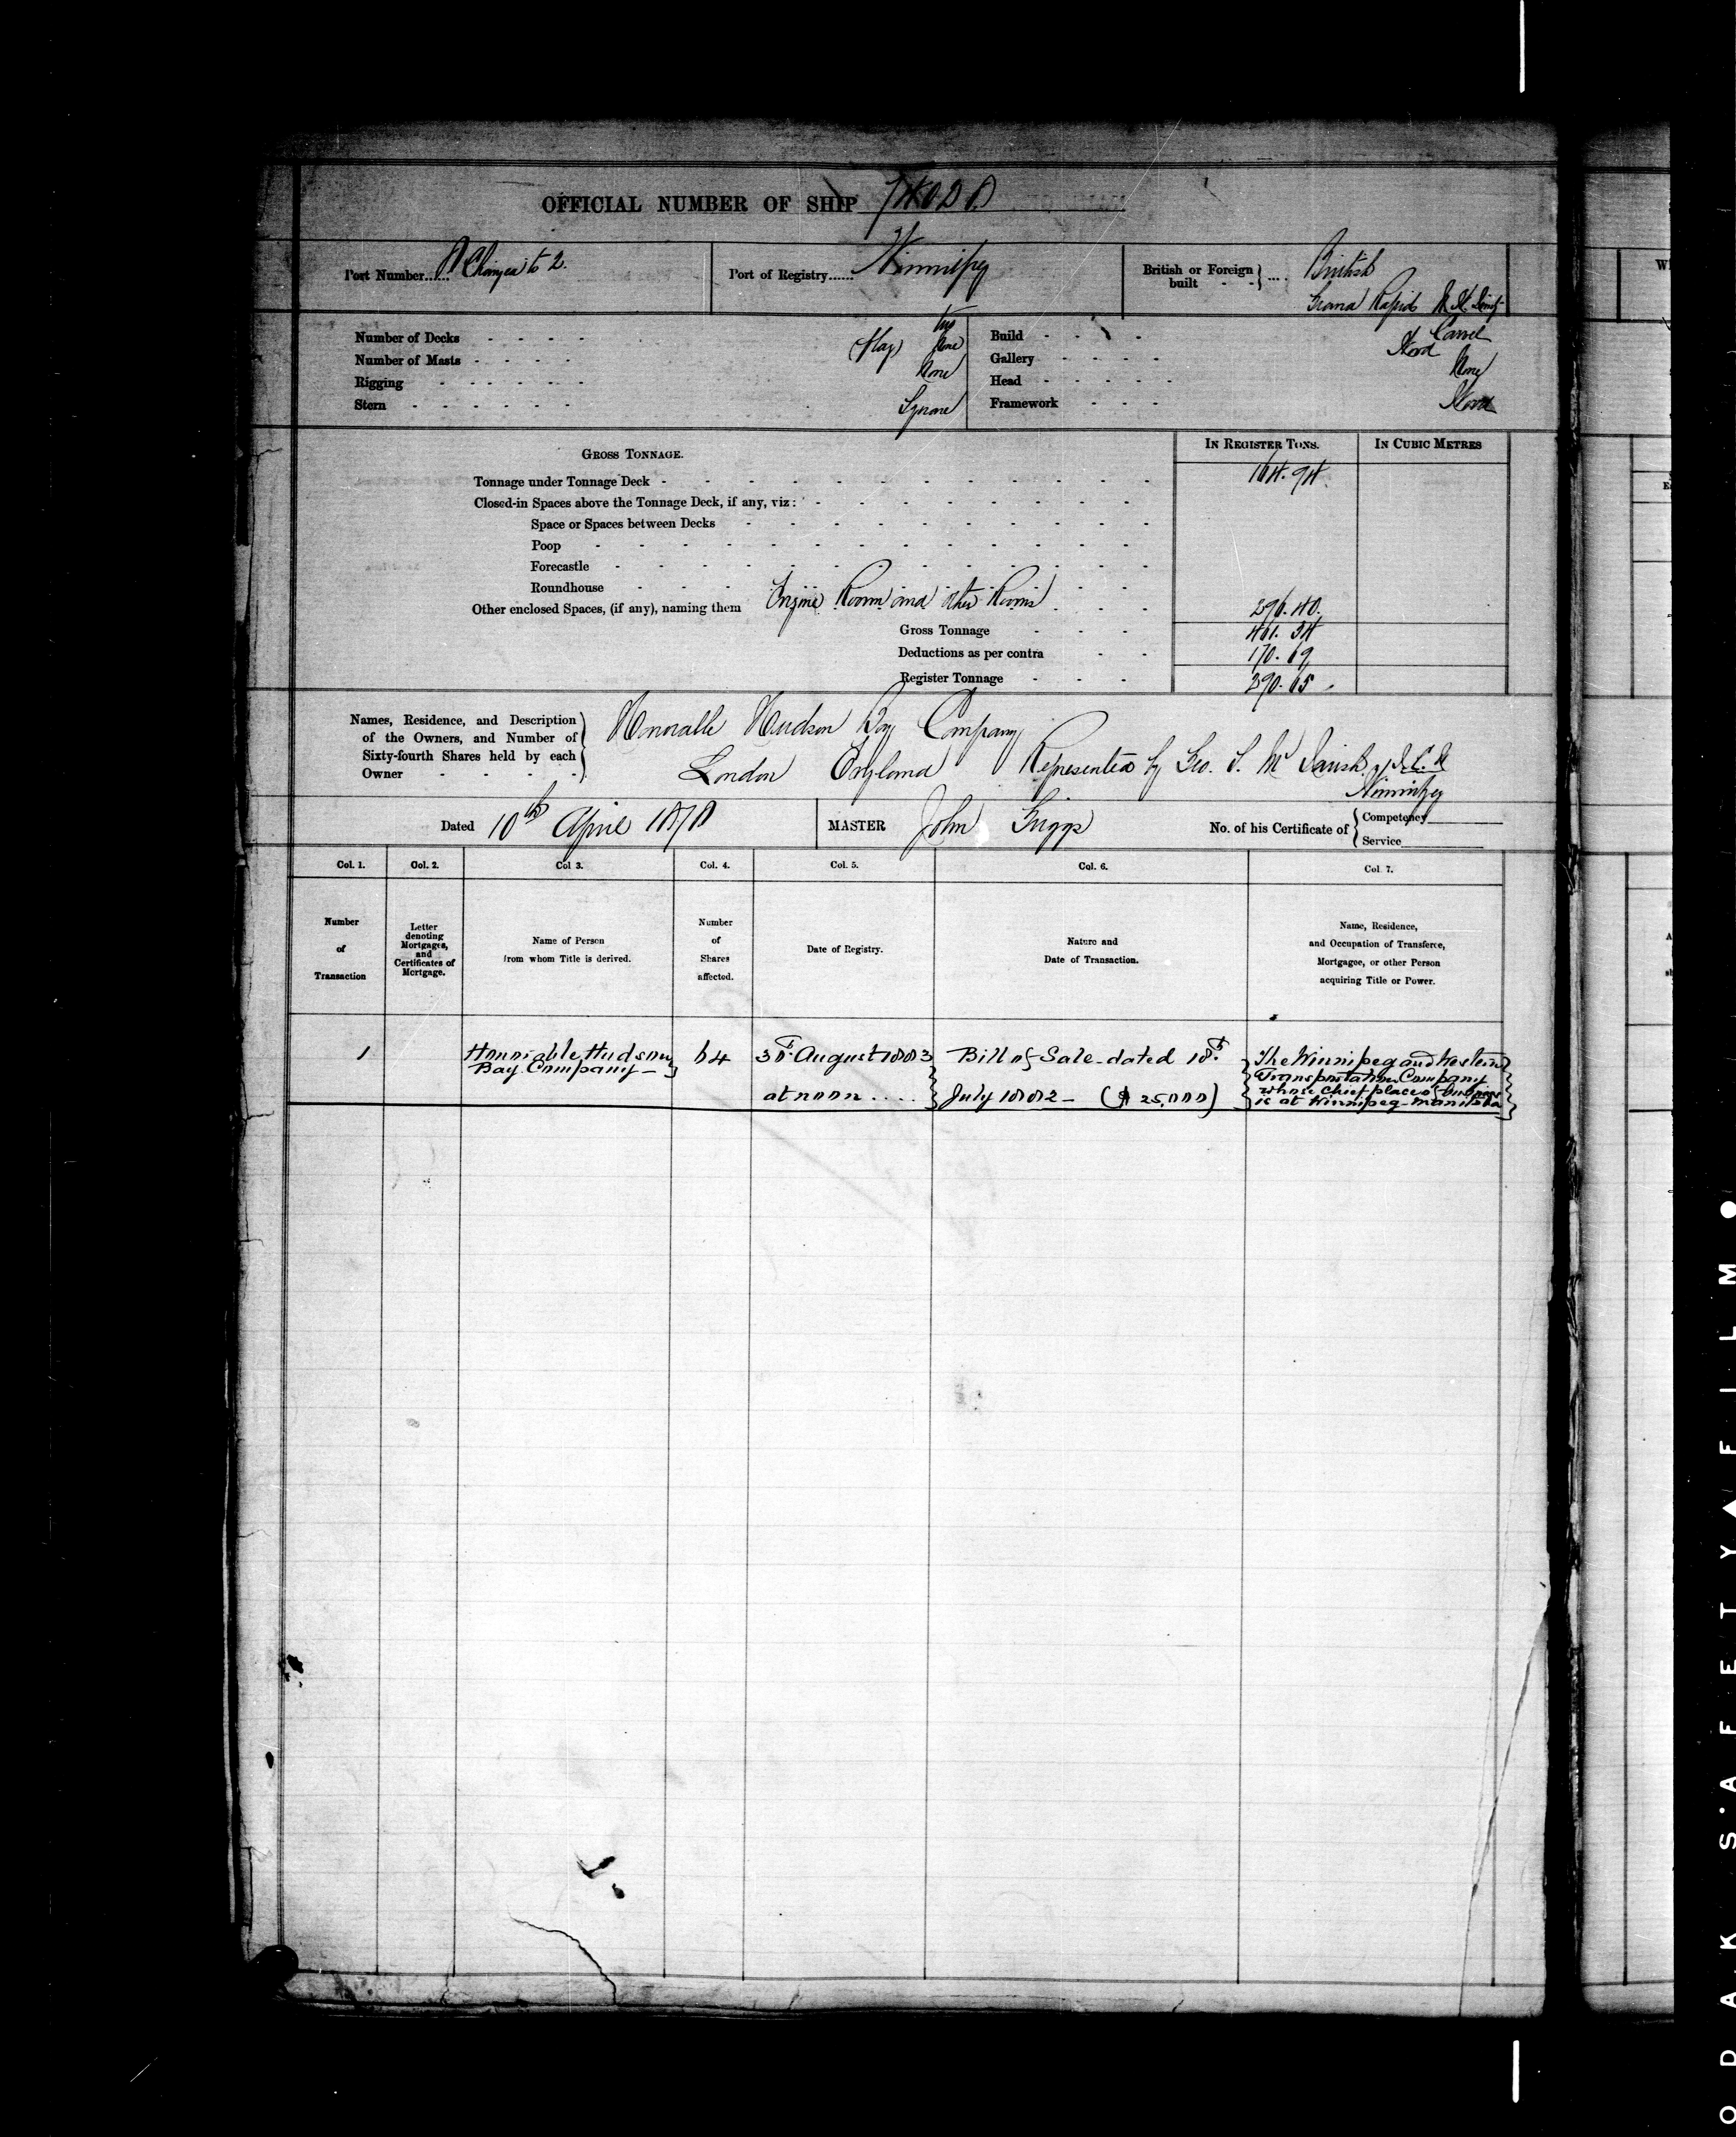 OFFICIAL NUMBER OF SHIP
Port Number...... Changed to 2.
Port of Registry...... Winnipeg
British or Foreign built - - } .... British
Grand Rapids
Number of Decks - - - - two
Number of Masts - - - - (Flag) None
Rigging - - - - - - None
Stern - - - - - - Square
Build - - - Carvel
Gallery - - - -
Head - - - - - None
Framework - - - Wood
IN REGISTER TONS.
IN CUBIC METRES
GROSS TONNAGE.
Tonnage under Tonnage Deck - 164.94
Closed-in Spaces above the Tonnage Deck, if any, viz:
Space or Spaces between Decks
Poop
Forecastle
Roundhouse
Other enclosed Spaces, (if any), naming them Engine Room and other Rooms 296.40
Gross Tonnage - - - 461.34
Deductions as per contra - - 170.69
Register Tonnage - - - 290.65
Names, Residence, and Description of the Owners, and Number of Sixty-fourth Shares held by each Owner - - - - -
Honorable Hudson Bay Company
London England Represented by Geo. S. Mc Tavish of
Winnipeg
Dated 10th April 1878
MASTER John Griggs
No. of his Certificate of { Competency
Service
Col. 1.
Col. 2.
Col 3.
Col. 4.
Col. 5.
Col. 6.
Col. 7.
Number of Transaction
Letter denoting Mortgages, and Certificates of Mortgage.
Name of Person from whom Title is derived.
Number of Shares affected.
Date of Registry.
Nature and Date of Transaction.
Name, Residence, and Occupation of Transferee, Mortgagee, or other Person acquiring Title or Power.
1
Honorable Hudson
Bay Company
64
August 1883
at noon ....
Bill of Sale dated 18th
July 1882 - ($ 25,000)
The Winnipeg and Western
Transportation Company
whose chief place of business
is at Winnipeg Manitoba
KODAK SAFETY FILM